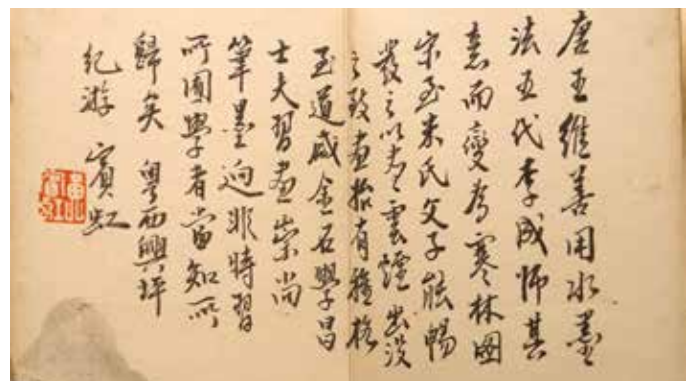 唐王維善用水墨
法五代李成師其
意而變為寒林圖
宋至米氏父子能暢
發之以盡雲煙出沒
之致畫始有雅格
至道咸金石學昌
士夫習畫崇尚
筆墨迥非時習
所囿學者當知所
歸矣 粵西興坪
紀游 賓虹